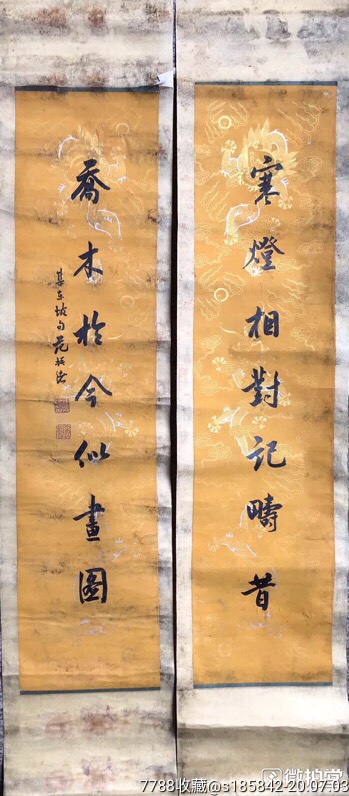 寒燈相對記疇昔
喬木於今似畫圖
集東坡句范振緒
微拍堂
7788收藏@s185842-20.07.03